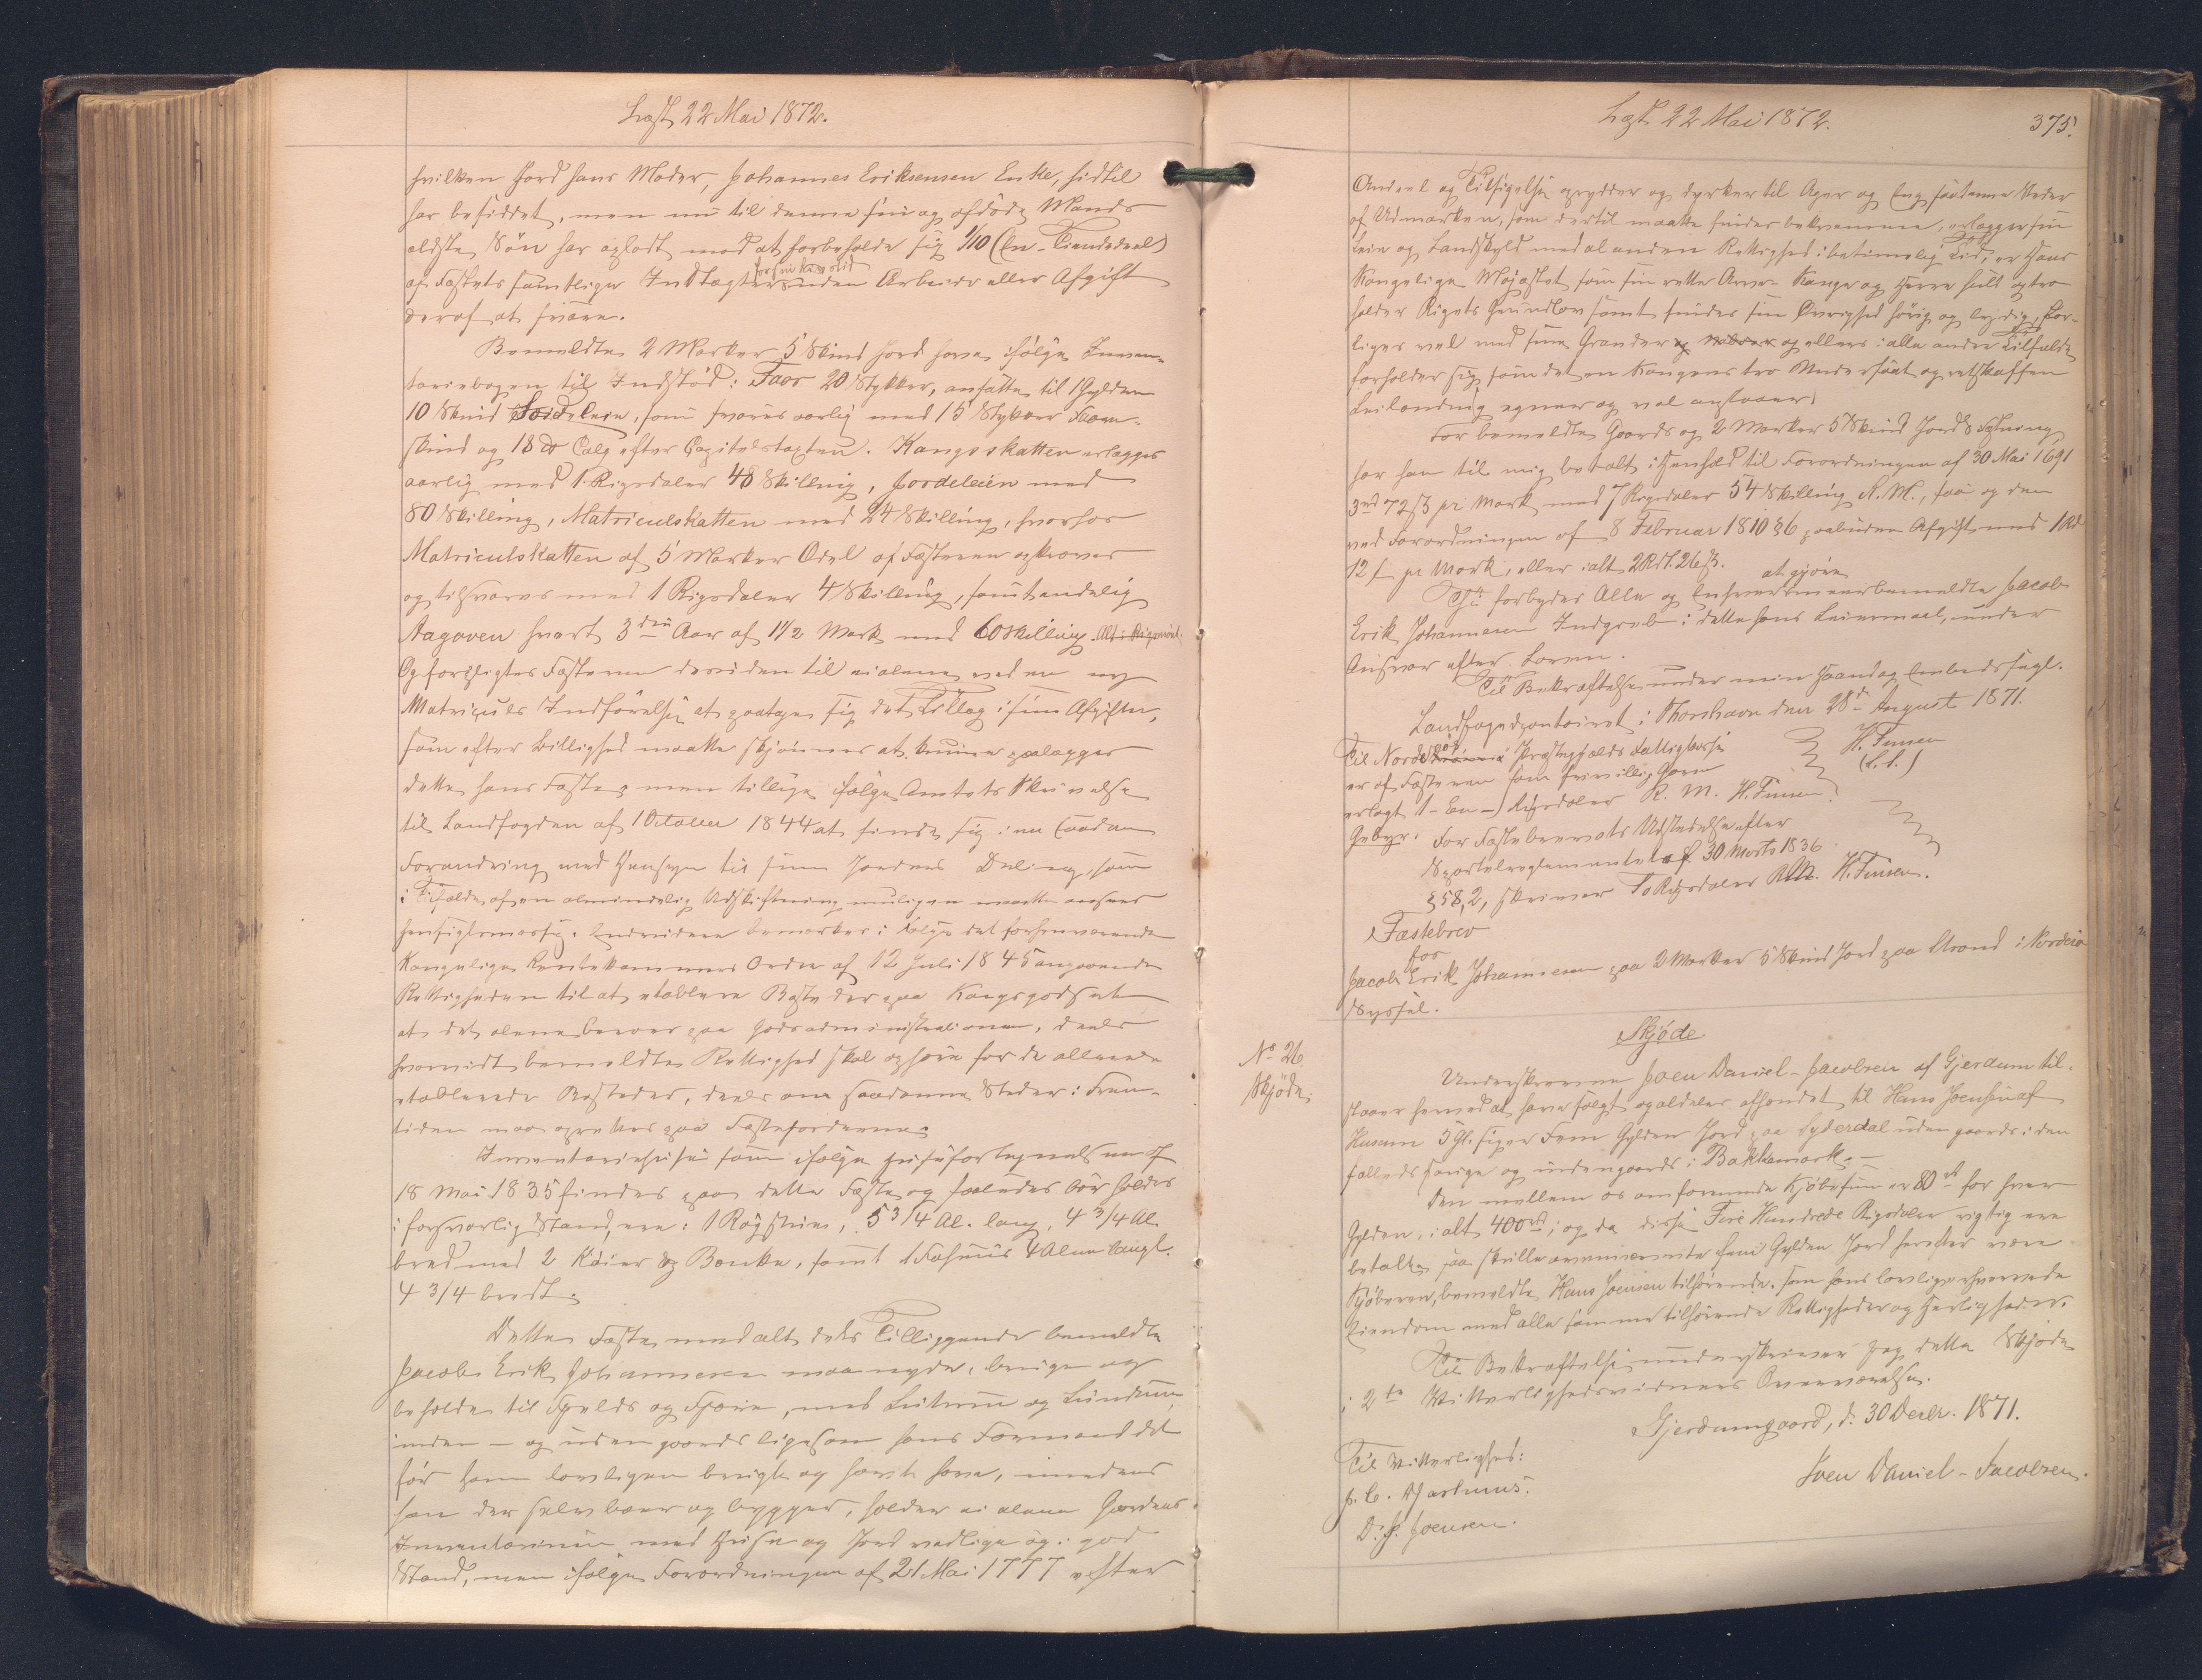 Læst 22 Mai 1872.
hvilken Jord hans Moder, Johannes Eriksensen Enke, hidtil
har besiddet, men nu til denne sin og afdøde Mands
ældste Søn har opladt mod at forbeholde sig 1/10 (En-Tiendedeel)
af Fæstets samtlige Indtægter for sin Levetid uden Arbeide eller Afgift
deraf at svare.
Bemeldte 2 Marker 5 Skind Jord have ifølge Inven-
tariebogen til Indstød: Faar 20 Stykker, ansatte til 1 Gylden
10 Skind Jordeleie, som svares aarlig med 15 Stykker Faare-
skind og 18 ℔ Talg efter Capitelstaxten. Kongsskatten erlægges
aarlig med 1 Rigsdaler 48 Skilling, Jordeleien med
80 Skilling, Matriculskatten med 24 Skilling, hvorhos
Matriculskatten af 5 Marker Odel af Fæsteren opkræves
og tilsvares med 1 Rigsdaler 4 Skilling, samt endelig
Aagaven hvert 3die Aar af 1 1/2 Mark med 60 Skilling. Alt i Rigsmønt.
Og forpligtes Fæsteren desuden til ei alene ved en ny
Matriculs Indførelse at paatage sig det Tillæg i sine Afgifter,
som efter Billighed maatte skjønnes at kunne paalægges
dette hans Fæste, men tillige ifølge Amtets Skrivelse
til Landfogden af 1 October 1844 at finde sig i en saadan
Forandring med Hensyn til sine Jorders Deling, som
i Tilfælde af en almindelig Udskiftning muligen maatte ansees
hensigtsmæssig. Endvidere bemærkes i Følge det forhenværende
Kongelige Rentekammers Ordre af 12 Juli 1845 angaaende
Rettigheden til at etablere Bosteder paa Kongsgodset
at det alene beroer paa Godsadministrationen, deels
hvorvidt bemeldte Rettighed skal ophøre for de allerede
etablerede Bosteder, deels om saadanne Steder i Frem-
tiden maa oprettes paa Fæstejorderne.
Inventariehuse som ifølge Huusfortegnelsen af
18 Mai 1835 findes paa dette Fæste og saaledes bør holdes
i forsvarlig Stand, ere: 1 Røgstue, 5 3/4 Al. lang, 4 3/4 Al.
bred med 2 Køier og Bænke, samt 1 Fæhuus 4 Alen langt.
4 3/4 bredt.
Dette Fæste med alt dets Tilliggende bemeldte
Jacob Erik Johannesen maa nyde, bruge og
beholde til Fjelds og Fjære, med Luttum og Lundum
inden- og uden gaards ligesom hans Formand det
før ham lovligen brugt og havt have, imedens
han der selv boer og bygger, holder ei alene Gaardens
Inventarium med Huse og Jord vedlige og i god
Stand, men ifølge Forordningen af 21 Mai 1777 efter
Læst 22 Mai 1872.
375.
Andeel og Tilsigelse oprydder og dyrker til Ager og Eng saadanne Steder
af Udmarken, som dertil maatte findes bekvemme, erlægger sin
Leie og Landskyld med al anden Rettighed i betimelig Tid, er Hans
Kongelige Majestæt som sin rette Arve-Konge og Herre huld og tro
holder Rigets Grundlov samt findes sin Øvrighed hørig og lydig, for-
liges vel med sine Grander og Naboer og ellers i alle andre Tilfælde
forholder sig som det en Kongens tro Undersaat og retskaffen
Leilænding egner og vel anstaaer.
For bemeldte Gaards og 2 Marker 5 Skind Jords Fæstning
har han til mig betalt i Henhold til Forordningen af 30 Mai 1691
3 rd 72 ß pr Mark med 7 Rigsdaler 54 Skilling R.M., saa og den
ved Forordningen af 8 Februar 1810 § 6 paabudne Afgift med 1 Rd
12 ß pr Mark, eller ialt 2 Rdl. 26 ß.
Thi forbydes Alle og Enhver at gjøre meerbemeldte Jacob
Erik Johannesen Indgreb i dette hans Leiermaal, under
Ansvar efter Loven.
Til Bekræftelse under min Haand og Embedssegl.
Landfogedcontoiret i Thorshavn den 28de August 1871.
H. Finsen
(L.S.)
Til Norderø Præstegjælds Fattigkasse
er af Fæsteren som frivillig Gave
erlagt 1 - En - Rigsdaler R. M. H. Finsen.
Gebyr: For Fæstebrevets Udstedelse efter
Sportelreglementet af 30 Marts 1836
§ 58, 2, skriver To Rigsdaler R.M. H. Finsen.
Fæstebrev
for
Jacob Erik Johannesen paa 2 Marker 5 Skind Jord paa Strond i Norderø
Syssel.
Skjøde
No 26.
Skjøde.
Underskrevne Joen Daniel-Jacobsen af Gjerdum til-
staaer herved at have solgt og aldeles afhændet til Hans Joensen af
Husum 5 Gl. siger Fem Gylden Jord paa Syderdal uden gaards i den
fælleds Hauge og indengaards i Bakkemark. -
Den mellem os omforenede Kjøbesum er 80 rd for hver
Gylden, ialt 400 rd; og da disse Fire Hundrede Rigsdaler rigtig ere
betalte, saa skulle ovennævnte fem Gylden Jord herefter være
Kjøberen, bemeldte Hans Joensen tilhørende, som hans lovlige erhvervede
Eiendom med alle samme tilhørende Rettigheder og Herligheder.
Til Bekræftelse underskriver jeg dette Skjøde
i 2de Vitterlighedsvidners Overværelse.
Gjerdumgaard, d. 30 Decbr. 1871.
Joen Daniel-Jacobsen.
Til Vitterlighed:
J. C. Djurhuus.
D. J. Joensen.